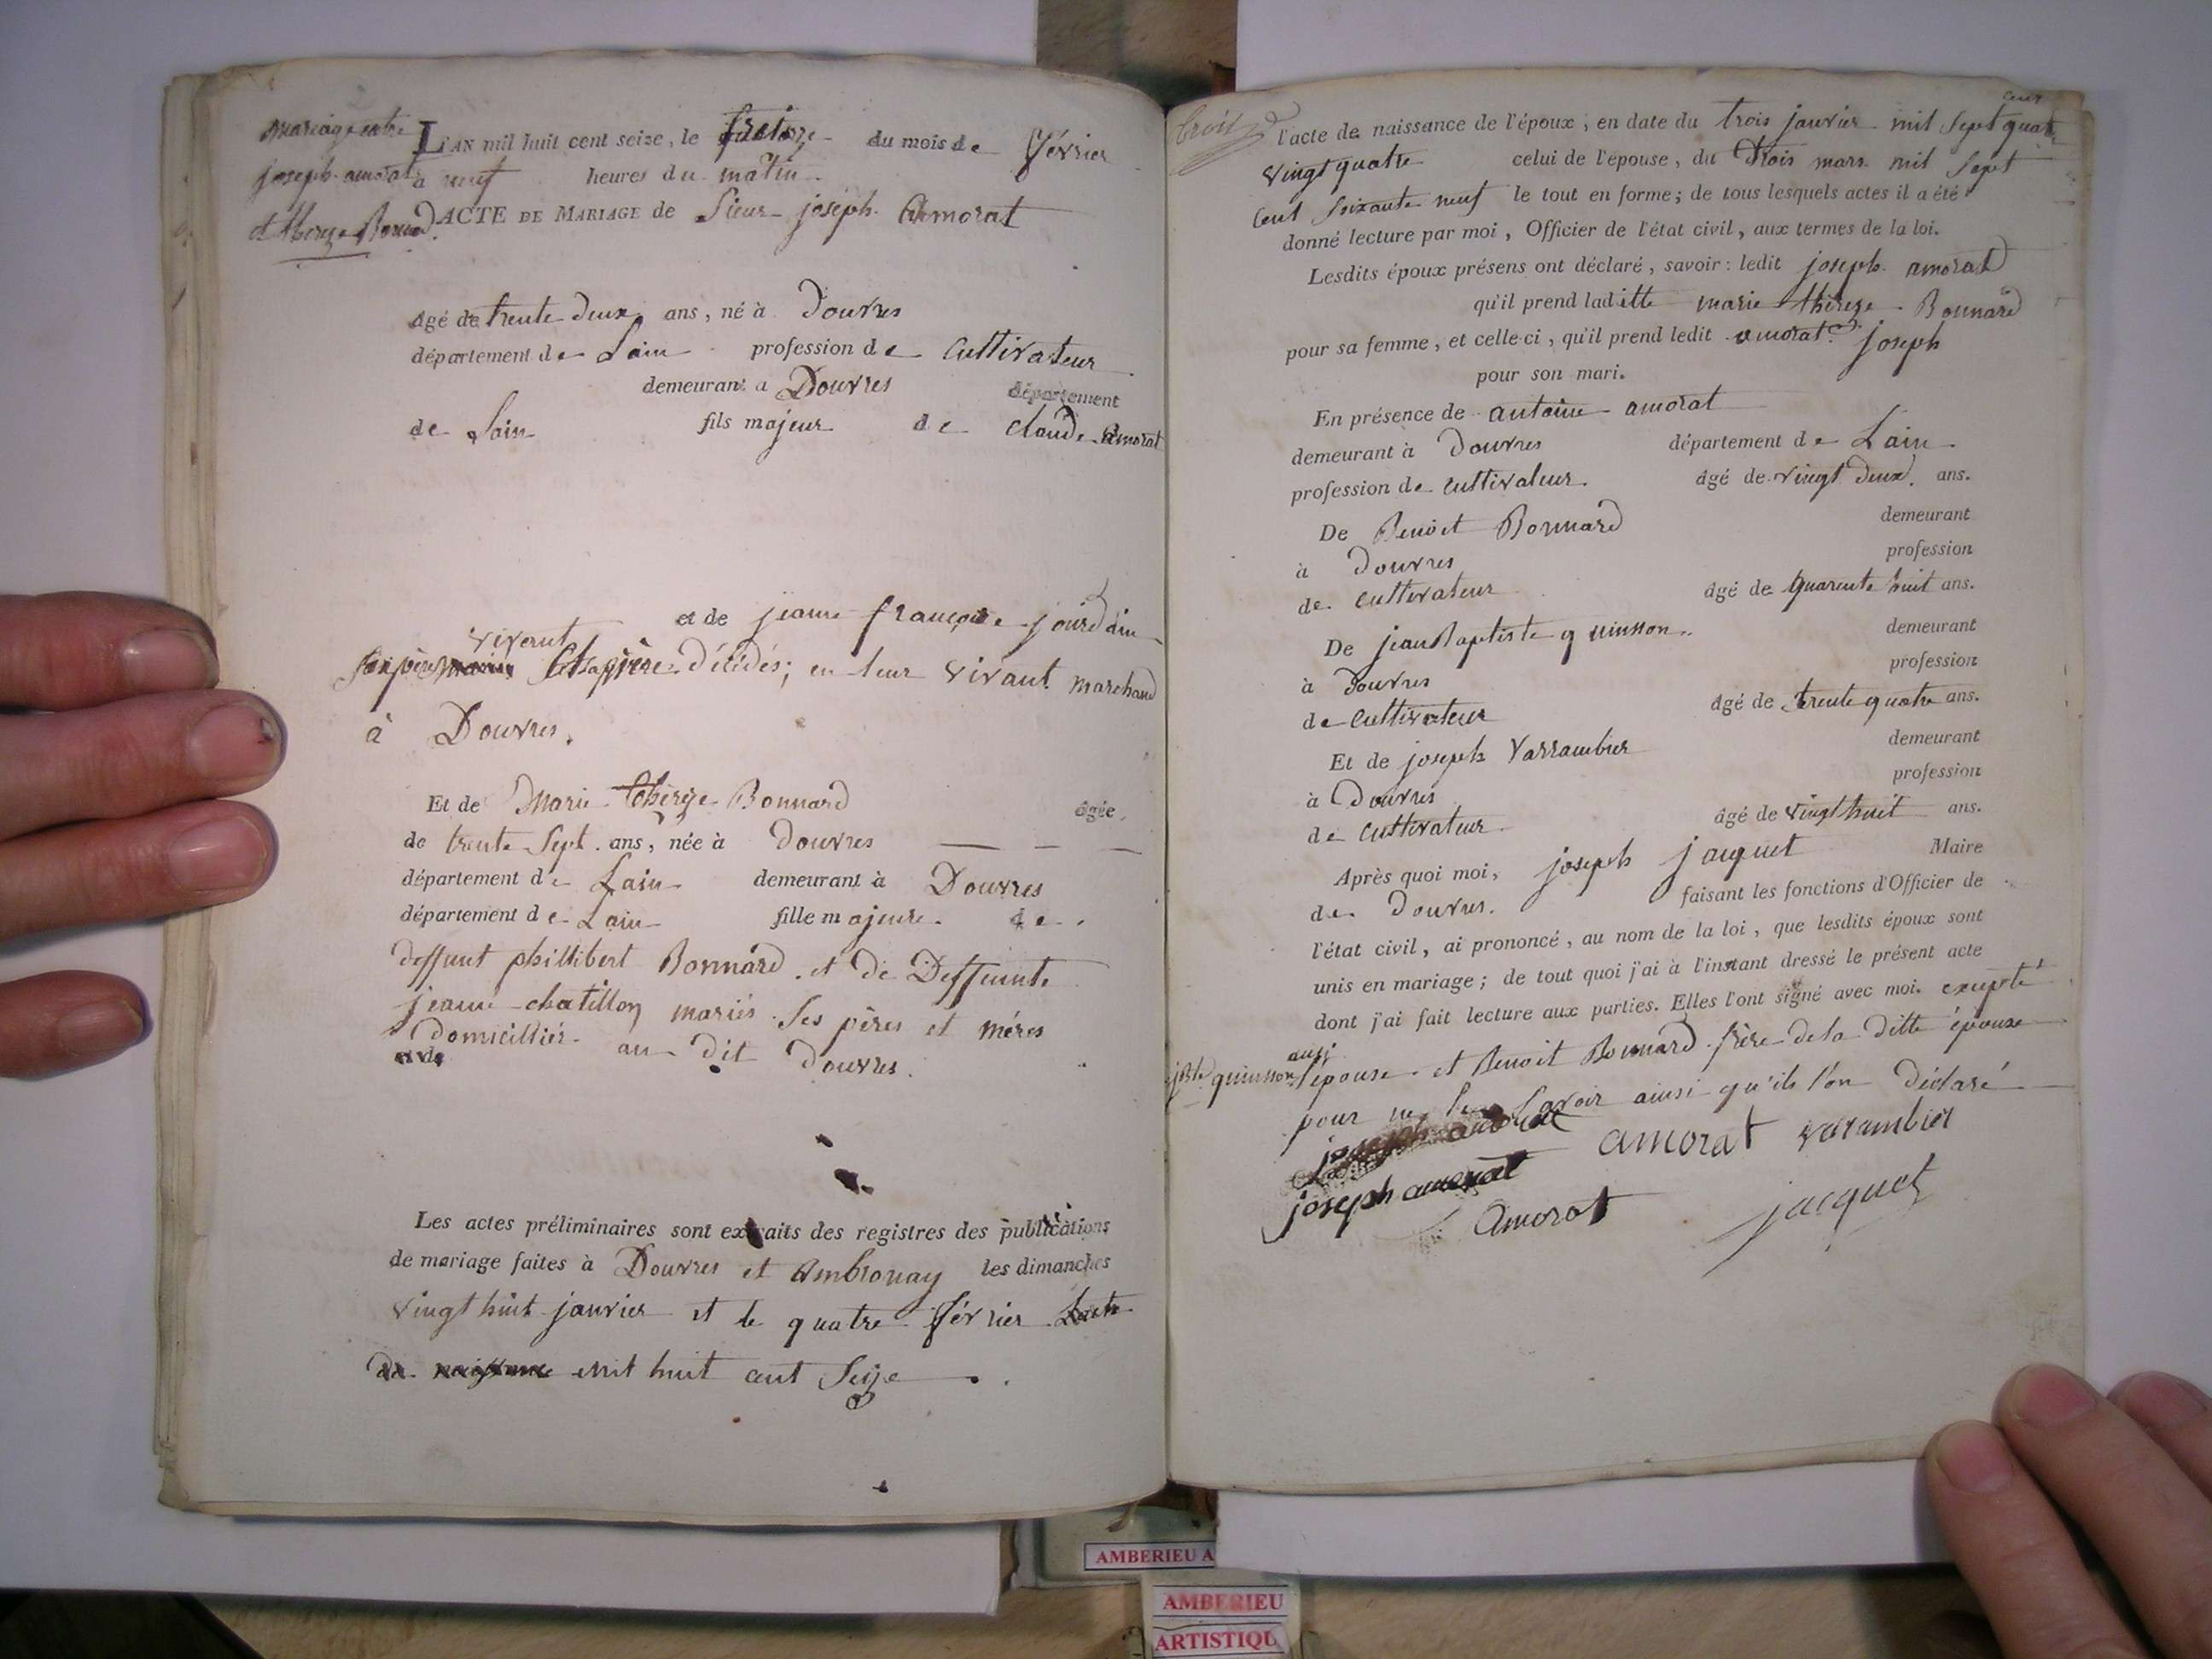 mariage entre
joseph amorat
et thereze Bonnard.
L'AN mil huit cent seize, le du mois de février
à neuf heures du matin.
ACTE DE MARIAGE de Sieur joseph Amorat
âgé de trente deux ans, né à Douvres
département de Lain profession de cultivateur
demeurant a Douvres département
de Lain fils majeur de claude Amorat
et de jeanne françoise jourdain
vivant
son père décédés; en leur vivant marchand
à Douvres.
Et de Marie thèreze Bonnard âgée
de trente Sept ans, née à Douvres
département de Lain demeurant à Douvres
département de Lain fille majeure de
deffunt phillibert Bonnard et de Deffunte
jeanne chatillon mariés ses pères et méres
Domicilliér au dit Douvres.
Les actes préliminaires sont extraits des registres des publications
de mariage faites à Douvres et Ambronay les dimanches
vingt huit janvier et le quatre février
mil huit cent Seize
l'acte de naissance de l'époux, en date du trois janvier mil sept quatre
vingt quatre celui de l'épouse, du trois mars mil sept
cent soixante neuf le tout en forme; de tous lesquels actes il a été
donné lecture par moi, Officier de l'état civil, aux termes de la loi.
Lesdits époux présens ont déclaré, savoir: ledit joseph amorat
qu'il prend laditte marie thèreze Bonnard
pour sa femme, et celle-ci, qu'il prend ledit amorat joseph
pour son mari.
En présence de antoine amorat
demeurant à Douvres département de Lain
profession de cultivateur. âgé de vingt deux ans.
De Benoit Bonnard demeurant
à Douvres profession
de cultivateur âgé de quarente huit ans.
De jean Baptiste quinson demeurant
à Douvres profession
de cultivateur âgé de trente quatre ans.
Et de joseph Varrambier demeurant
à Douvres profession
de cultivateur âgé de vingt huit ans.
Après quoi moi, joseph jacquet Maire
de Douvres. faisant les fonctions d'Officier de
l'état civil, ai prononcé, au nom de la loi, que lesdits époux sont
unis en mariage; de tout quoi j'ai à l'instant dressé le présent acte
dont j'ai fait lecture aux parties. Elles l'ont signé avec moi. excepté
quinson aussi
l'épouse et Benoit Bonnard frère de la ditte épouse
pour ne le savoir ainsi qu'ils l'on déclaré
joseph amorat amorat varambier
joseph amorat
Amorat jacquet
AMBERIEU A
AMBERIEU
ARTISTIQU